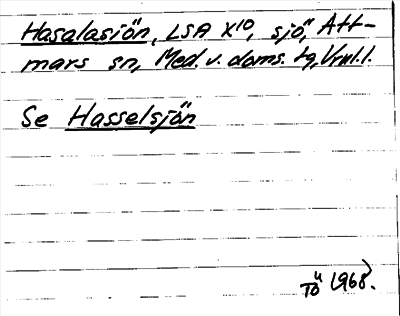 Hasalasjön, LSA X10, sjö, Att-
mars sn, Med. v. doms. tg, Vml. l.
Se Hasselsjön
TÖ 1968.